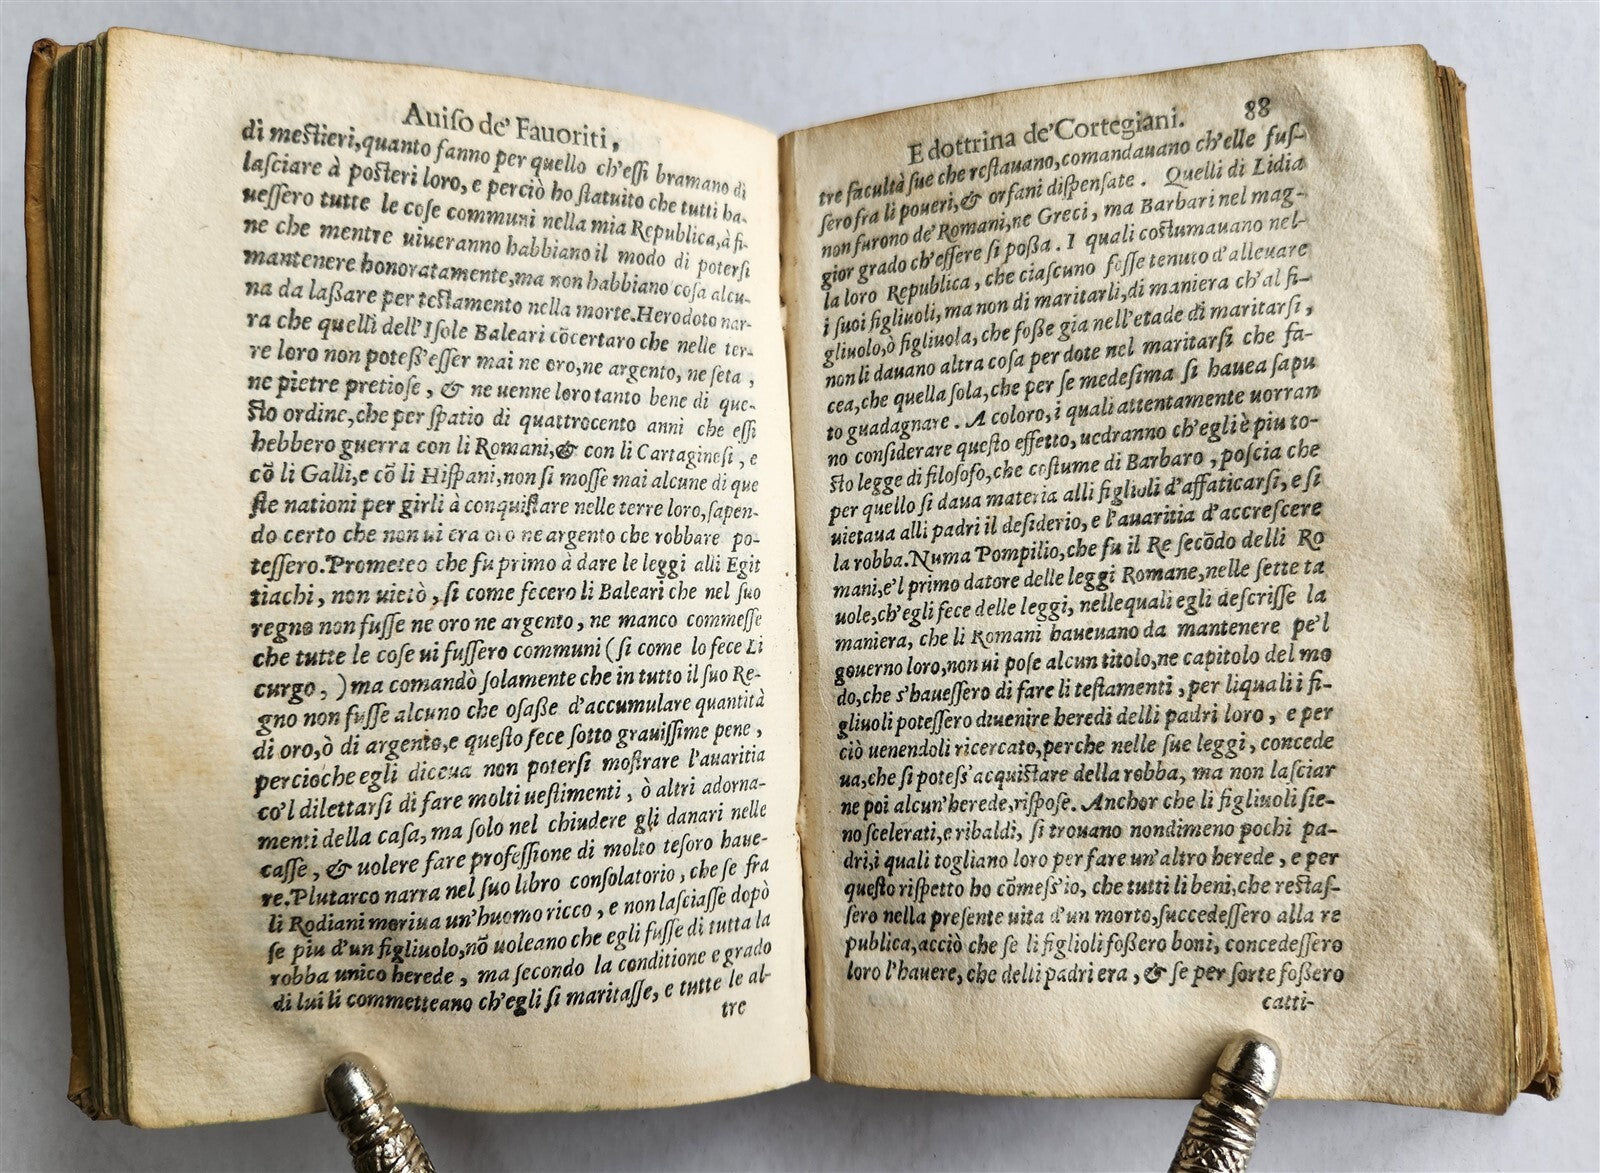 Auiſo de' Fauoriti,
di meſtieri, quanto fanno per quello ch'eſſi bramano di
laſciare à poſteri loro, e perciò ho ſtatuito che tutti ha-
ueſſero tutte le coſe communi nella mia Republica, à fi-
ne che mentre uiueranno habbiano il modo di poterſi
mantenere honoratamente, ma non habbiano coſa alcu-
na da laßare per teſtamento nella morte. Herodoto nar-
ra che quelli dell'Iſole Baleari cõcertaro che nelle ter-
re loro non poteß'eſſer mai ne oro, ne argento, ne ſeta,
ne pietre pretioſe, & ne uenne loro tanto bene di que-
ſto ordine, che per ſpatio di quattrocento anni che eſſi
hebbero guerra con li Romani, & con li Cartagineſi, e
cõ li Galli, e cõ li Hiſpani, non ſi moſſe mai alcune di que
ſte nationi per girli à conquiſtare nelle terre loro, ſapen-
do certo che non ui era oro ne argento che robbare po-
teſſero. Prometeo che fu primo à dare le leggi alli Egit
tiachi, non uietò, ſi come fecero li Baleari che nel ſuo
regno non fuſſe ne oro ne argento, ne manco commeſſe
che tutte le coſe ui fuſſero communi (ſi come lo fece Li
curgo, ) ma comandò ſolamente che in tutto il ſuo Re-
gno non fuſſe alcuno che oſaße d'accumulare quantità
di oro, ò di argento, e queſto fece ſotto grauiſſime pene,
percioche egli diceua non poterſi moſtrare l'auaritia
co'l dilettarſi di fare molti ueſtimenti, ò altri adorna-
menti della caſa, ma ſolo nel chiudere gli danari nelle
caſſe, & uolere fare profeſſione di molto teſoro haue-
re. Plutarco narra nel ſuo libro conſolatorio, che ſe fra
li Rodiani moriua un'huomo ricco, e non laſciaſſe dopò
ſe piu d'un figliuolo, nõ uoleano che egli fuſſe di tutta la
robba unico herede, ma ſecondo la conditione e grado
di lui li commetteano ch'egli ſi maritaſſe, e tutte le al-
tre
E dottrina de' Cortegiani. 88
tre facultà ſue che reſtauano, comandauano ch'elle fuſ-
ſero fra li poueri, & orfani diſpenſate. Quelli di Lidia
non furono de' Romani, ne Greci, ma Barbari nel mag-
gior grado ch'eſſere ſi poßa. I quali coſtumauano nel-
la loro Republica, che ciaſcuno foſſe tenuto d'alleuare
i ſuoi figliuoli, ma non di maritarli, di maniera ch'al fi-
gliuolo, ò figliuola, che foße gia nell'etade di maritarſi,
non li dauano altra coſa per dote nel maritarſi che fa-
cea, che quella ſola, che per ſe medeſima ſi hauea ſapu
to guadagnare. A coloro, i quali attentamente uorran
no conſiderare queſto effetto, uedranno ch'egli è piu to-
ſto legge di filoſofo, che coſtume di Barbaro, poſcia che
per quello ſi daua materia alli figlioli d'affaticarſi, e ſi
uietaua alli padri il deſiderio, e l'auaritia d'accreſcere
la robba. Numa Pompilio, che fu il Re ſecõdo delli Ro
mani, e'l primo datore delle leggi Romane, nelle ſette ta
uole, ch'egli fece delle leggi, nelle quali egli deſcriſſe la
maniera, che li Romani haueuano da mantenere pe'l
gouerno loro, non ui poſe alcun titolo, ne capitolo del mo
do, che s'haueſſero di fare li teſtamenti, per li quali i fi-
gliuoli poteſſero diuenire heredi delli padri loro, e per
ciò uenendoli ricercato, perche nelle ſue leggi, concede
ua, che ſi poteſs'acquiſtare della robba, ma non laſciar
ne poi alcun'herede, riſpoſe. Anchor che li figliuoli ſie-
no ſcelerati, e ribaldi, ſi trouano nondimeno pochi pa-
dri, i quali togliano loro per fare un'altro herede, e per
queſto riſpetto ho cõmeſs'io, che tutti li beni, che reſtaſ-
ſero nella preſente uita d'un morto, ſuccedeſſero alla re
publica, acciò che ſe li figlioli foßero boni, concedeſſero
loro l'hauere, che delli padri era, & ſe per ſorte foßero
catti-